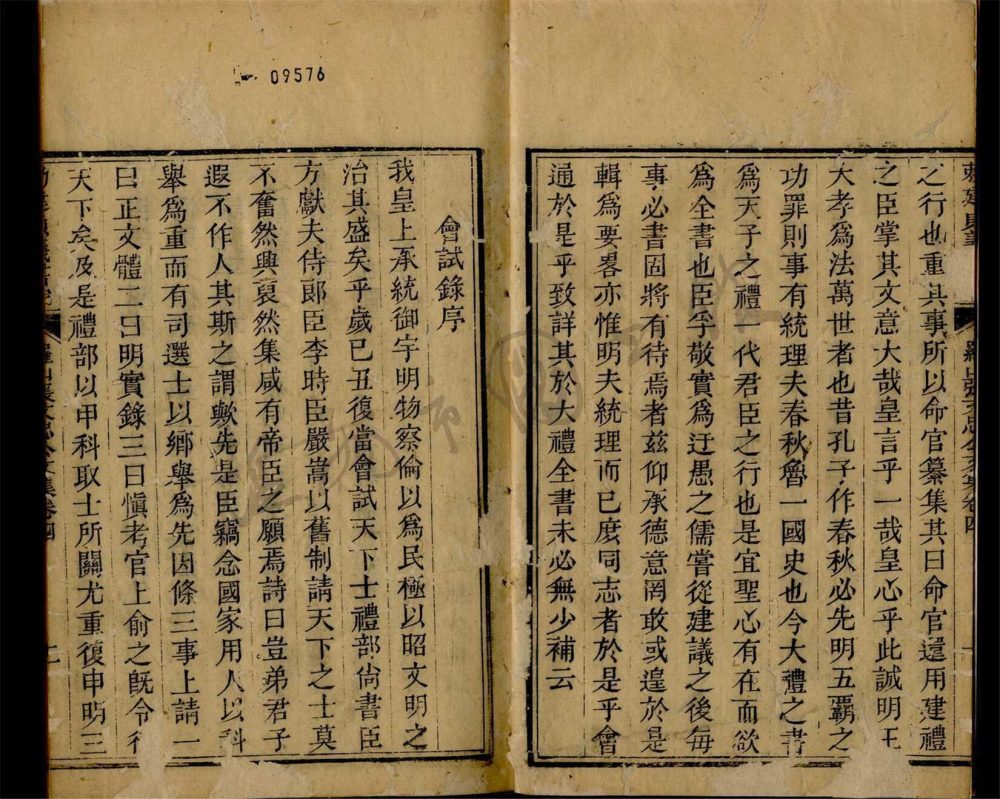 09576
之行也重其事所以命官纂集其曰命官還用建禮
之臣掌其文意大哉皇言乎一哉皇心乎此誠明王
大孝爲法萬世者也昔孔子作春秋必先明五霸之
功罪則事有統理夫春秋魯一國史也今大禮之書
爲天子之禮一代君臣之行也是宜聖心有在而欲
爲全書也臣孚敬實爲迂愚之儒嘗從建議之後每
事必書固將有待焉者茲仰承德意罔敢或遑於是
輯爲要畧亦惟明夫統理而已麽同志者於是乎會
通於是乎致詳其於大禮全書未必無少補云
會試錄序
我皇上承統御宇明物察倫以爲民極以昭文明之
治其盛矣乎歲己丑復當會試天下士禮部尚書臣
方獻夫侍郎臣李時臣嚴嵩以舊制請天下之士莫
不奮然興裒然集咸有帝臣之願焉詩曰豈弟君子
遐不作人其斯之謂歟先是臣竊念國家用人以科
舉爲重而有司選士以鄉舉爲先因條三事上請一
曰正文體二曰明實錄三曰愼考官上俞之旣令行
天下矣及是禮部以甲科取士所關尤重復申明三
文忠公文集卷四
二